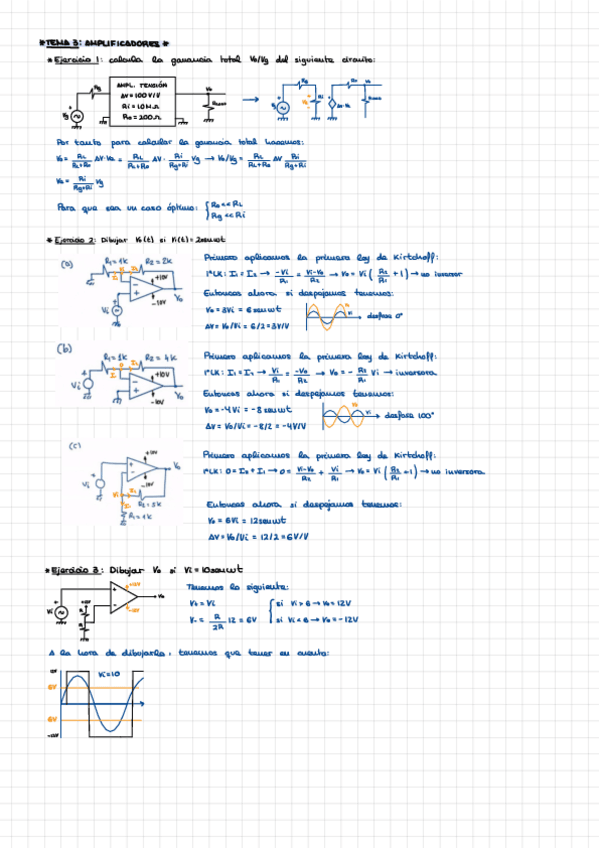 * TEMA 3: AMPLIFICADORES *
* Ejercicio 1: calcula la ganancia total Vo/Vg del siguiente circuito:
AMPL. TENSIÓN
ΔV = 100 V/V
Ri = 10 MΩ
Ro = 200 Ω
Rg
Vg
Vo
Por tanto para calcular la ganancia total hacemos:
Vo = RL/(RL+Ro) ΔV·Vi = RL/(RL+Ro) ΔV · Ri/(Rg+Ri) Vg → Vo/Vg = RL/(RL+Ro) ΔV Ri/(Rg+Ri)
Ri/(Rg+Ri) Vg
Para que sea un caso óptimo: { Ro << RL
Rg << Ri
* Ejercicio 2: Dibujar Vo(t) si Vi(t) = 2senwt
(a)
R1 = 1k R2 = 2k
+10V
-10V
Vi
Vo
Primero aplicamos la primera ley de Kirtchoff:
1ªLK: I1 = I2 → -Vi/R1 = (Vi-Vo)/R2 → Vo = Vi (R2/R1 + 1) → no inversor
Entonces ahora si despejamos tenemos:
Vo = 3Vi = 6 senwt
ΔV = Vo/Vi = 6/2 = 3V/V
desfase 0°
(b)
R2 = 4k
+10V
-10V
Vi
Vo
Primero aplicamos la primera ley de Kirtchoff:
1ªLK: I1 = I2 → Vi/R1 = -Vo/R2 → Vo = - R2/R1 Vi → inversora
Entonces ahora si despejamos tenemos:
Vo = -4Vi = -8 senwt
ΔV = Vo/Vi = -8/2 = -4V/V
(c)
+10V
-10V
Vi
Vo
R2 = 5k
R1 = 1k
Primero aplicamos la primera ley de Kirtchoff:
1ªLK: 0 = I2 + I1 → 0 = (Vi-Vo)/R2 + Vi/R1 → no inversora
Entonces ahora si despejamos tenemos:
Vo = 6Vi = 12senwt
ΔV = Vo/Vi = 12/2 = 6V/V
* Ejercicio 3: Dibujar Vo si Vi = 10senwt
+12V
-12V
Vi
Vo
R
R
Tenemos lo siguiente:
V+ = Vi
V- = R/2R 12 = 6V
si Vi > 6 → Vo = 12V
si Vi < 6 → Vo = -12V
A la hora de dibujarla, tenemos que tener en cuenta:
12V
6V
Vi = 10
6V
-12V